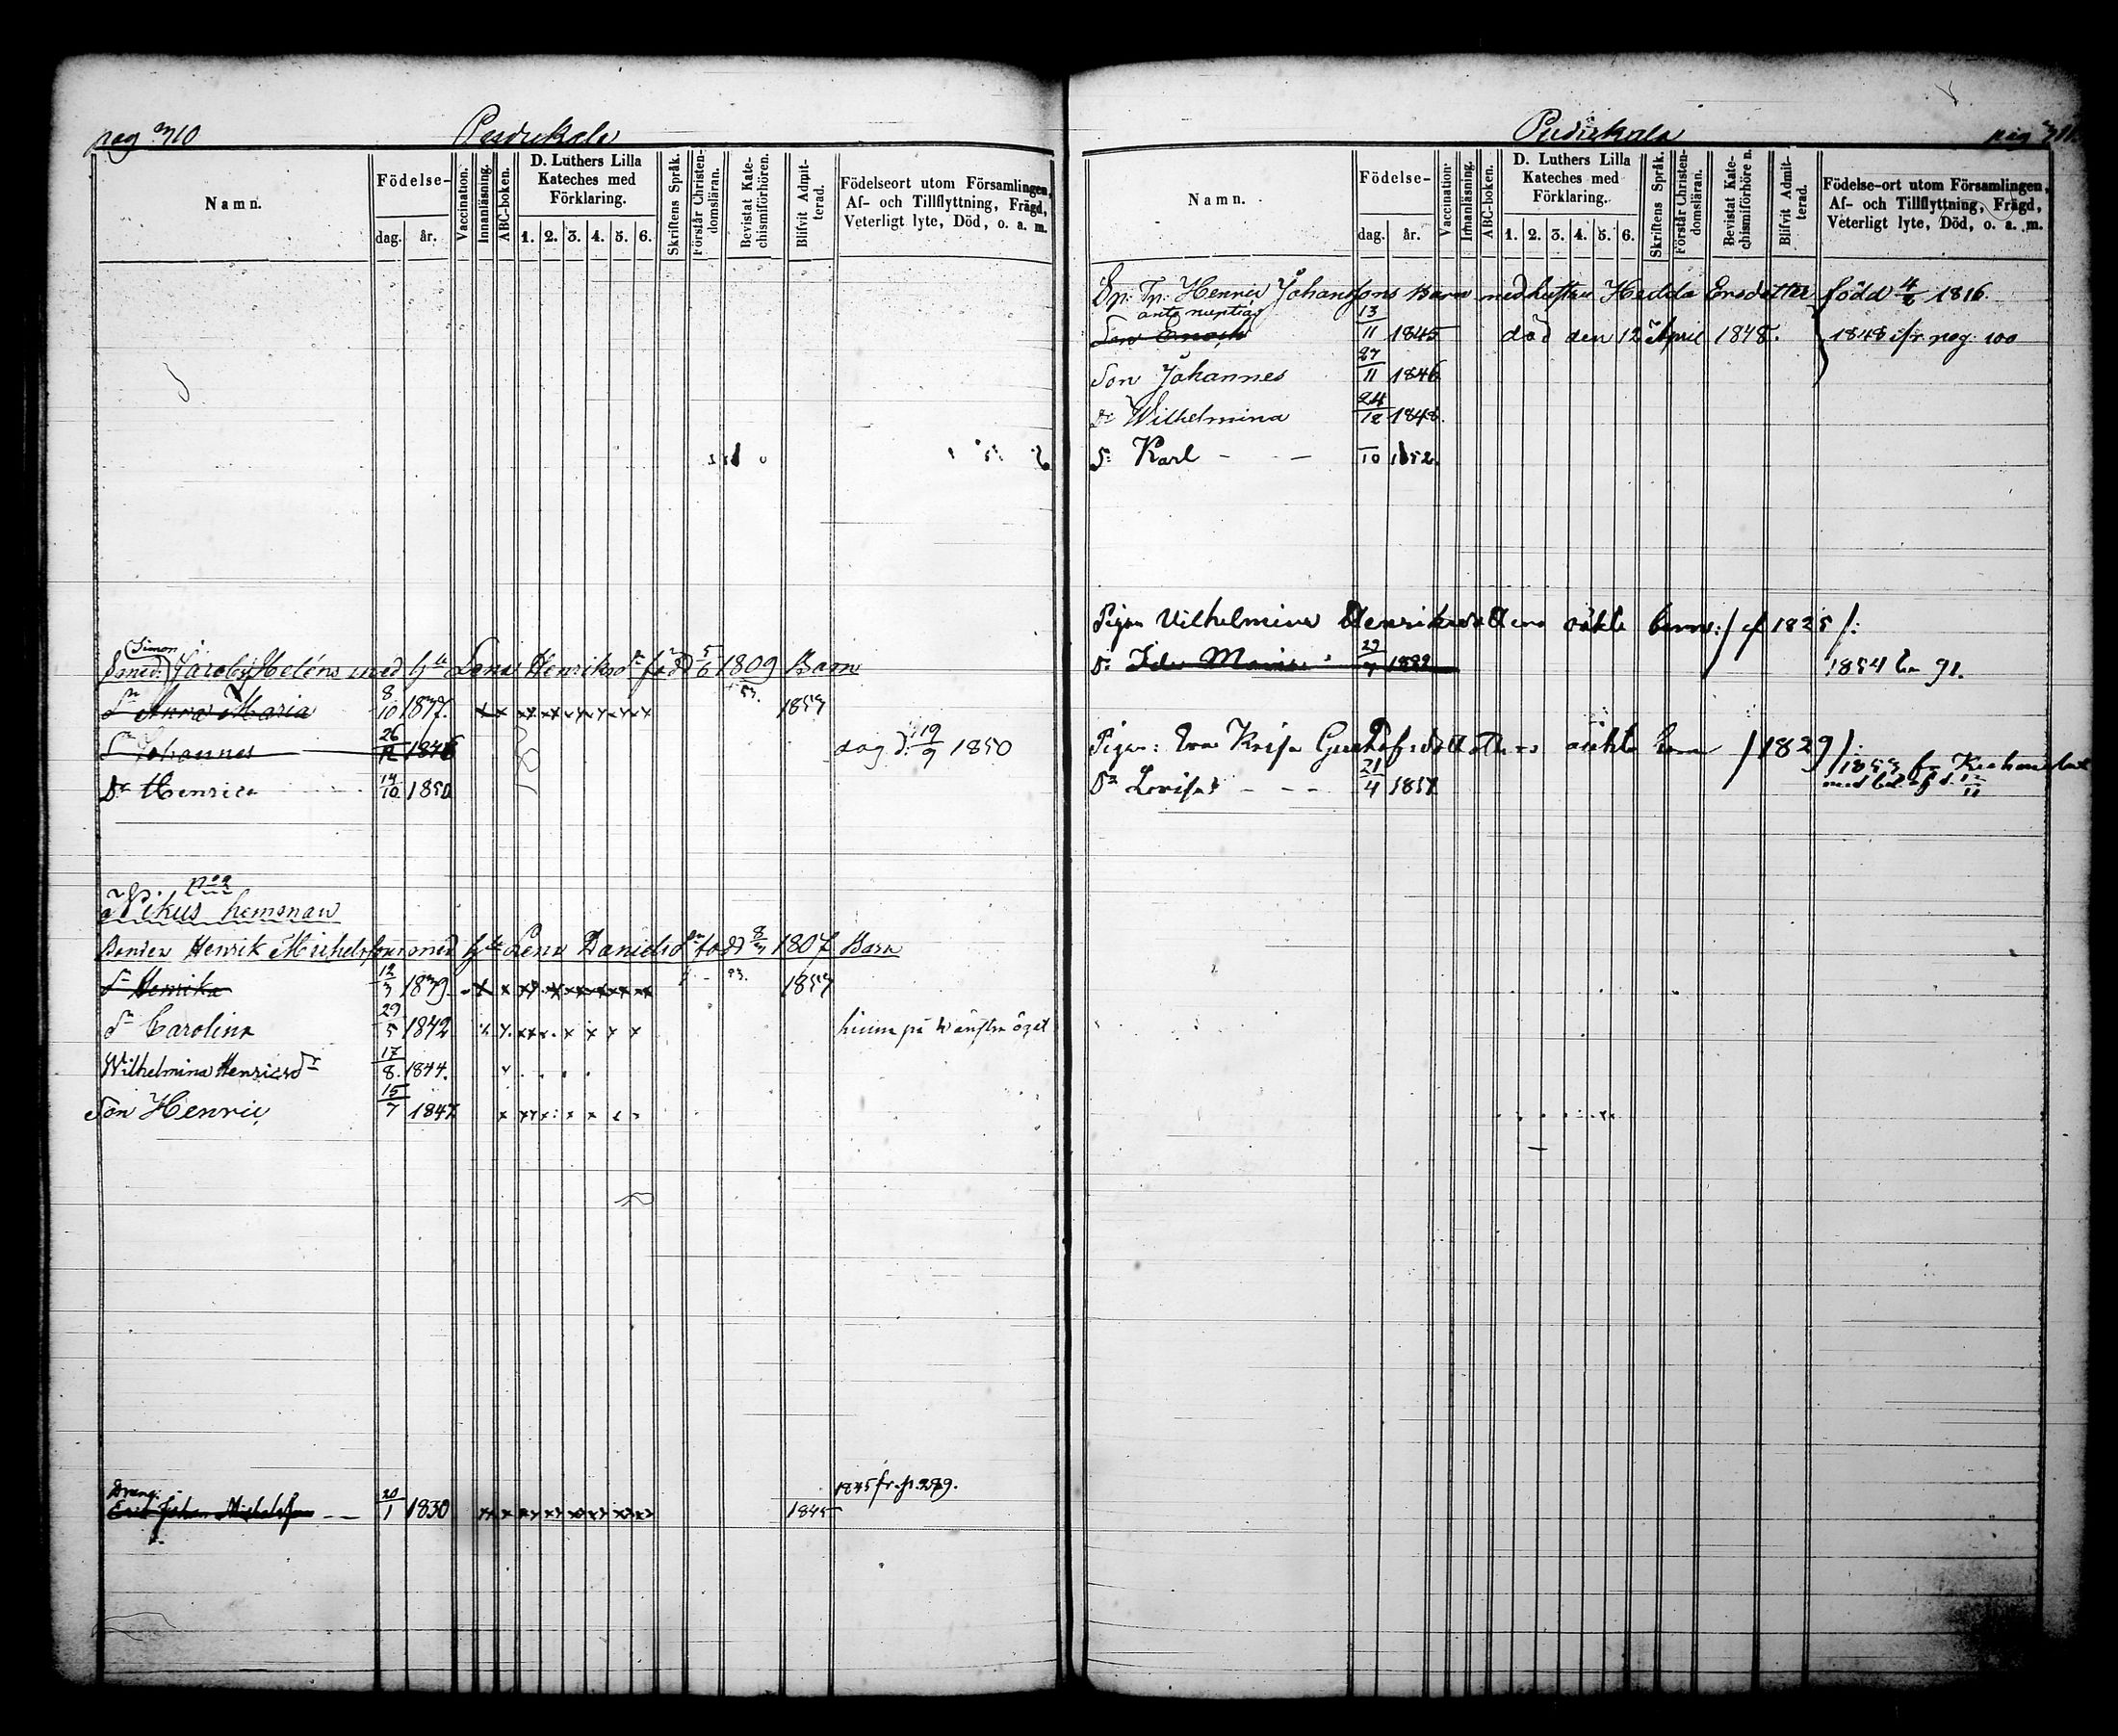 pag 310
Pudukala
Namn.
Födelse-
dag. år.
Vaccination.
Innanläsning.
ABC-boken.
D. Luthers Lilla Kateches med Förklaring.
1. 2. 3. 4. 5. 6.
Skriftens Språk.
Förstår Christendomsläran.
Bevistat Katechismiförhören.
Blifvit Admitterad.
Födelseort utom Församlingen,
Af- och Tillflyttning, Frägd,
Veterligt lyte, Död, o. a. m.
Simon
Jacobs Heléns med h Lena Henriksd född 5/6 1809 Barn
Dr Anna Maria 8/10 1837. x x 1853
Johannes 26/12 1846 dog d. 19/9 1850
Dr Henrica 14/10 1850
hemman
Bonden Henrik Michelsson med h Lena Danielsd född 8/3 1807 Barn
Dr Henrika 12/3 1839 1853
Dr Carolina 29/5 1842 hinna på wänstra ögat
Wilhelmina Henricsdr 17/8 1844.
Son Henric 15/7 1847
1845 fr. p. 289.
Dreng:
Erik Johan Michelsson 20/1 1830 1845
Pudukala
pag 311.
Namn.
Födelse-
dag. år.
Vaccination.
Innanläsning.
ABC-boken.
D. Luthers Lilla Kateches med Förklaring.
1. 2. 3. 4. 5. 6.
Skriftens Språk.
Förstår Christendomsläran.
Bevistat Katechismiförhören.
Blifvit Admitterad.
Födelse-ort utom Församlingen,
Af- och Tillflyttning, Frägd,
Veterligt lyte, Död, o. a. m.
Sp: Tp: Henric Johanssons Barn med hustru Hedda Ersdotter född 4/2 1816.
ante nuptias
Son Enoch 13/11 1845 död den 12 April 1848. 1848 ifr pag: 100
Son Johannes 27/11 1846
Dr Wilhelmina 24/12 1848.
S: Karl - - /10 1852.
Pigan Vilhelmina Henriksdotters oäkta barn :/ f 1825 /:
D: Ida Maria 29/ 1854 91.
Pigan: Eva Krisa Gustafsdotters oäkta barn / 1829 /:
Da Lovisa - - - 21/4 1853 1853 fr Kristinestad
med bet. af d. /11